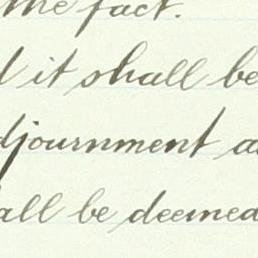 the fact.
it shall be
djournment a
all be deemed